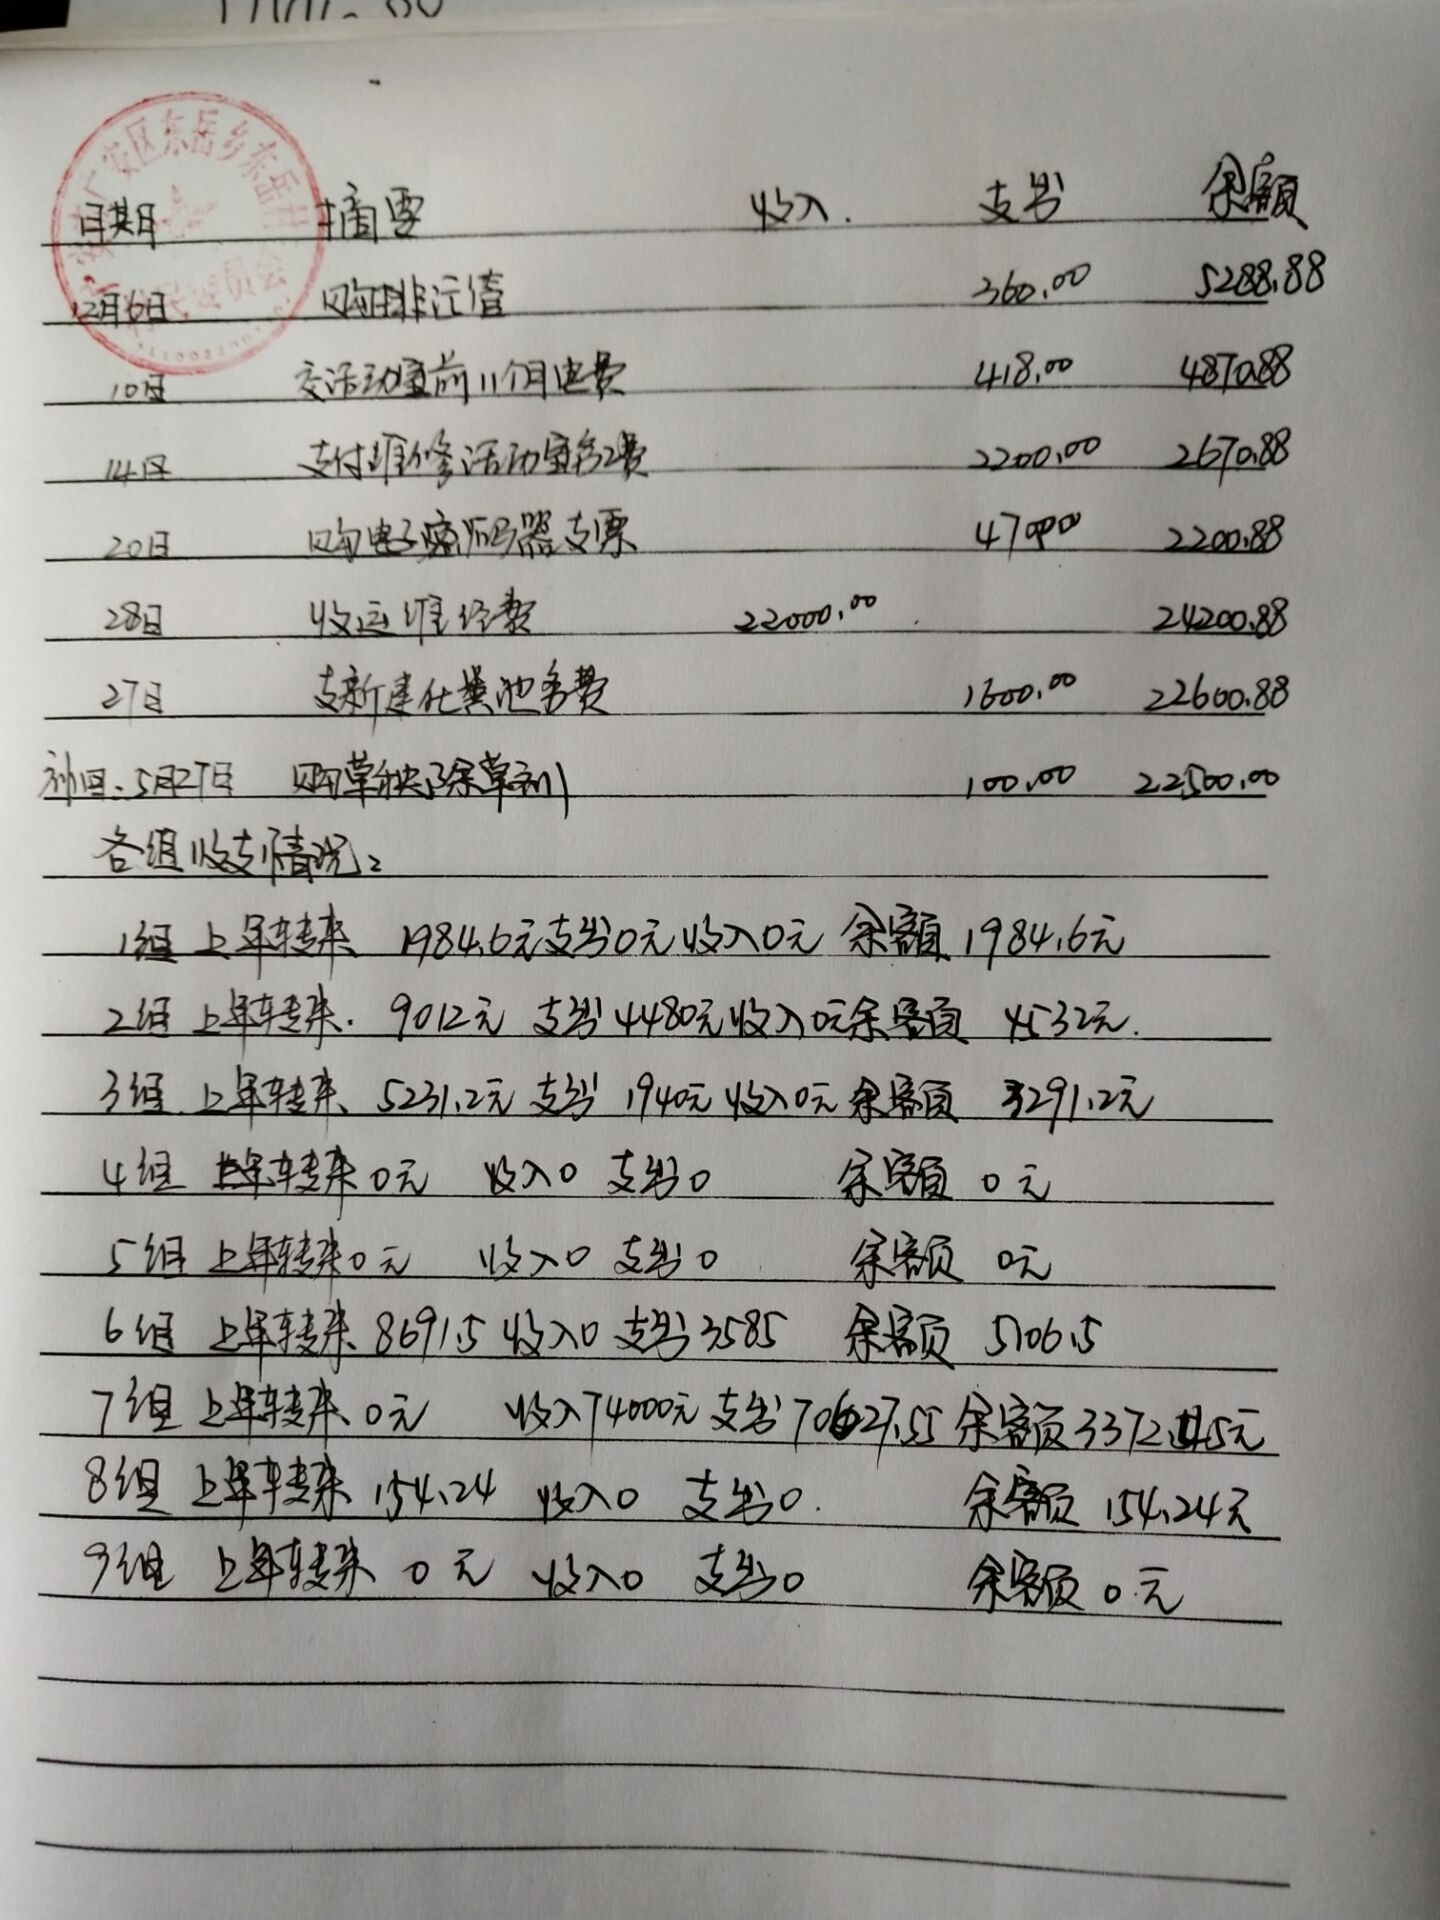 广安区东岳乡东岳村
村民委员会
日期 摘要 收入 支出 余额
12月6日 购排污管 360.00 5288.88
10日 交活动室前11个月电费 418.00 4870.88
14日 支付维修活动室务工费 2200.00 2670.88
20日 购电子密码器支票 470.00 2200.88
28日 收运维经费 22000.00 24200.88
27日 支新建化粪池务费 1600.00 22600.88
补日.5月27日 购草秧除草剂 100.00 22500.00
各组收支情况:
1组 上年转来 1984.6元 支出0元 收入0元 余额 1984.6元
2组 上年转来. 9012元 支出4480元 收入0元 余额 4532元.
3组 上年转来 5231.2元 支出 1940元 收入0元 余额 3291.2元
4组 上年转来 0元 收入0 支出0 余额 0元
5组 上年转来 0元 收入0 支出0 余额 0元
6组 上年转来 8691.5 收入0 支出3585 余额 5106.5
7组 上年转来 0元 收入74000元 支出70627.55 余额3372.45元
8组 上年转来 154.24 收入0 支出0. 余额 154.24元
9组 上年转来 0元 收入0 支出0 余额 0元